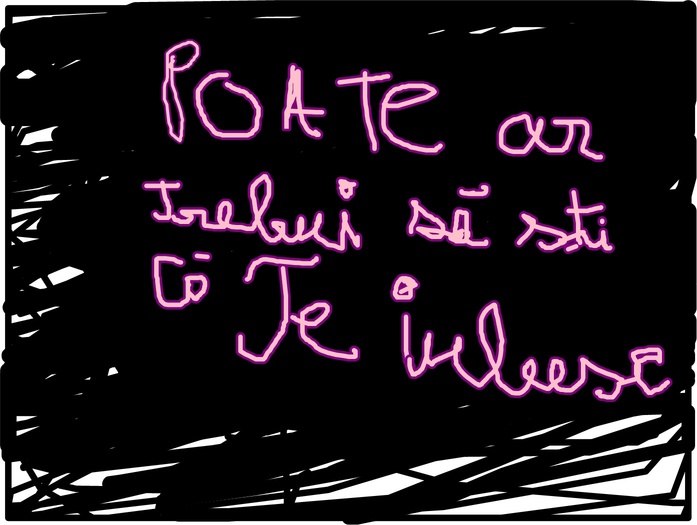 POATE ar
trebui să ști
că Te iubesc